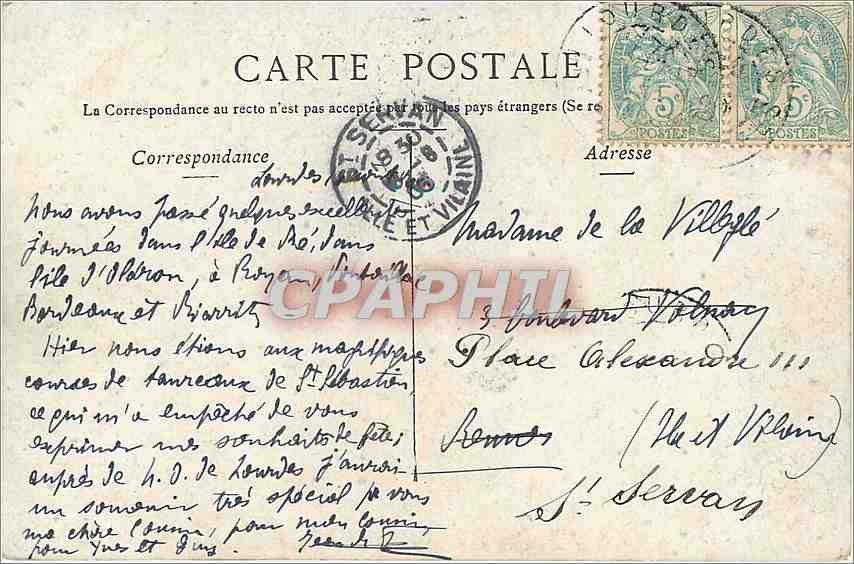 CARTE POSTALE
La Correspondance au recto n'est pas acceptée par tous les pays étrangers (Se re
Correspondance
Adresse
LOURDES
5c 5c
POSTES POSTES
ST SERVAN
ILLE ET VILAINE
CPAPHIL
Lourdes
Nous avons passé quelques excellentes
journées dans l'île de Ré, dans
l'île d'Oléron, à Royan, Pontaillac
Bordeaux et Biarritz
Hier nous étions aux magnifiques
courses de taureaux de St Sébastien,
ce qui m'a empêché de vous
exprimer mes souhaits de fête;
auprès de N. D. de Lourdes j'aurai
un souvenir très spécial pr vous
ma chère Cousine, pour mon Cousin,
pour Yves et
Madame de la Villeglé
3 boulevard Volnay
Place Alexandre III
Rennes (Ile et Vilaine)
St Servan